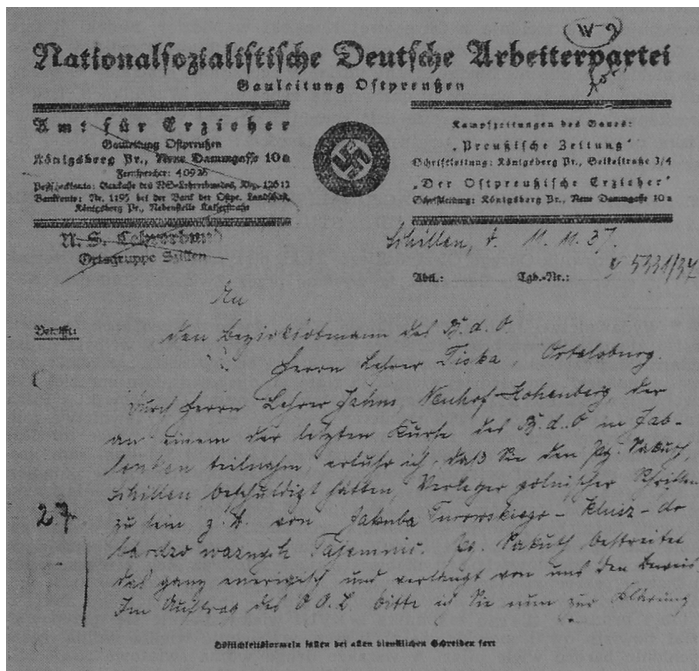 W 9
Nationalsozialistische Deutsche Arbeiterpartei
Gauleitung Ostpreußen
Amt für Erzieher
Gauleitung Ostpreußen
Königsberg Pr., Neue Dammgasse 10a
Fernsprecher: 40926
Postscheckkonto: Gaukasse des NS-Lehrerbundes, Kbg. 12612
Bankkonto: Nr. 1195 bei der Bank der Ostpr. Landschaft,
Königsberg Pr., Nebenstelle Kaiserstraße
Kampfzeitungen des Gaues:
„Preußische Zeitung“
Schriftleitung: Königsberg Pr., 3/4
„Der Ostpreußische Erzieher“
Schriftleitung: Königsberg Pr., Neue Dammgasse 10a
N. S. Lehrerbund
Ortsgruppe
d. 11. 11. 37.
Abtl.: Tgb.-Nr.: 5331/37
An
Betrifft:
den Bezirksobmann des B. d. O.
Herrn Lehrer Tiska, Ortelsburg.
Durch Herrn Lehrer Jahns, Neuhof-Hohenberg, der
an einem der letzten Kurse des B. d. O. in Jab-
lonken teilnahm, erfuhr ich, daß Sie den Pg.
beschuldigt hätten, Verleger polnischer Schriften
27
zu sein z. B. von Jakuba Turowskiego - Klucz - do
bardzo ważnych Tajemnic. Pg. bestreitet
das ganz energisch und verlangt von uns den Beweis.
Im Auftrag des bitte ich Sie nun zur Klärung
Höflichkeitsformeln fallen bei allen dienstlichen Schreiben fort